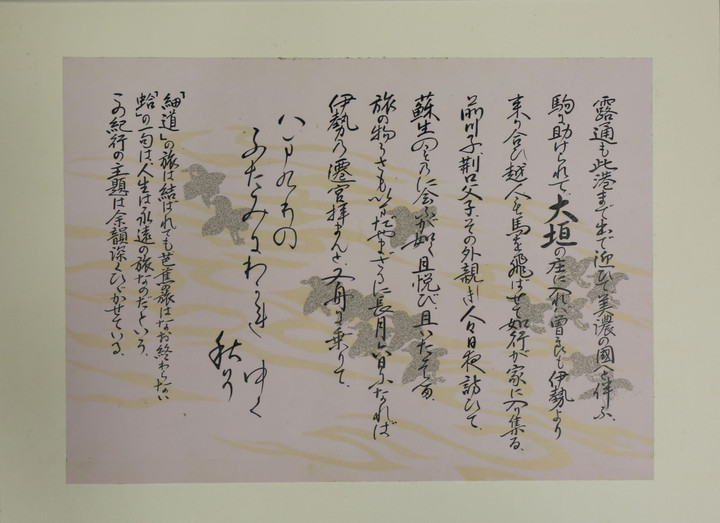 露通も此港まで出で迎ひて美濃の國へと伴ふ、
駒に助けられて、大垣の庄に入れば曽良も伊勢より
来り合ひ越人も馬を飛ばせて如行が家に入り集る、
前川子、荊口父子、その外親しき人々日夜訪ひて、
蘇生のものに会ふが如く且悦び、且いたはる、
旅の物うさもいまだやまざるに長月六日になれば
伊勢の遷宮拝まんと、又舟に乗りて、
はまぐりの
ふたみにわかれ ゆく
秋ぞ
「細道」の旅は結ばれても芭蕉の旅はなお終わらない
「蛤」の一句は、人生は永遠の旅なのだという、
この紀行の主題は余韻深くひびかせている、